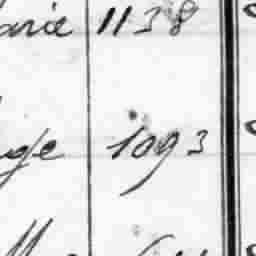 arie 1138
ge 1093